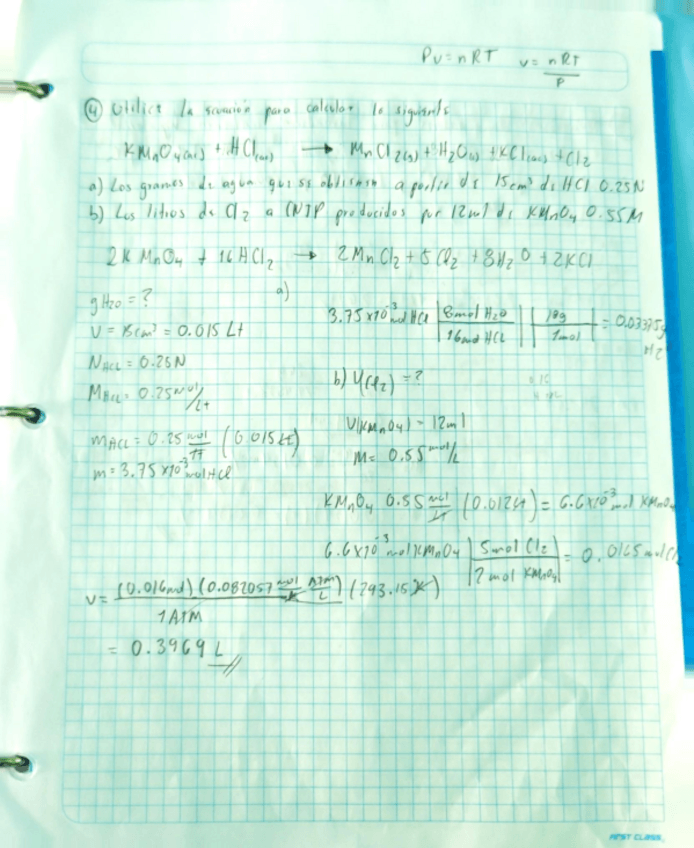 PV=nRT V= nRT/P
④ Utilice la ecuación para calcular lo siguiente
KMnO4(ac) + HCl(ac) → MnCl2(s) + H2O(l) + KCl(ac) + Cl2
a) Los gramos de agua que se obtienen a partir de 15cm³ de HCl 0.25N
b) Los litros de Cl2 a CNTP producidos por 12ml de KMnO4 0.55M
2KMnO4 + 16HCl2 → 2MnCl2 + 5Cl2 + 8H2O + 2KCl
gH2O = ?
V = 15cm³ = 0.015 Lt
NHCL = 0.25N
MHCL = 0.25 mol/Lt
mHCL = 0.25 mol/lt (0.015Lt)
m = 3.75x10⁻³ mol HCl
a)
3.75x10⁻³ mol HCl | 8mol H2O / 16mol HCl | 18g / 1mol | = 0.03375g
b) V(Cl2) = ?
V(KMnO4) = 12ml
M = 0.55 mol/L
KMnO4 0.55 mol/Lt (0.012Lt) = 6.6x10⁻³ mol KMnO4
6.6x10⁻³ mol KMnO4 | 5mol Cl2 / 2mol KMnO4 | = 0.0165 mol Cl
V = (0.016mol)(0.082057 mol/K ATM/L)(293.15K) / 1ATM
= 0.3969 L
FIRST CLASS